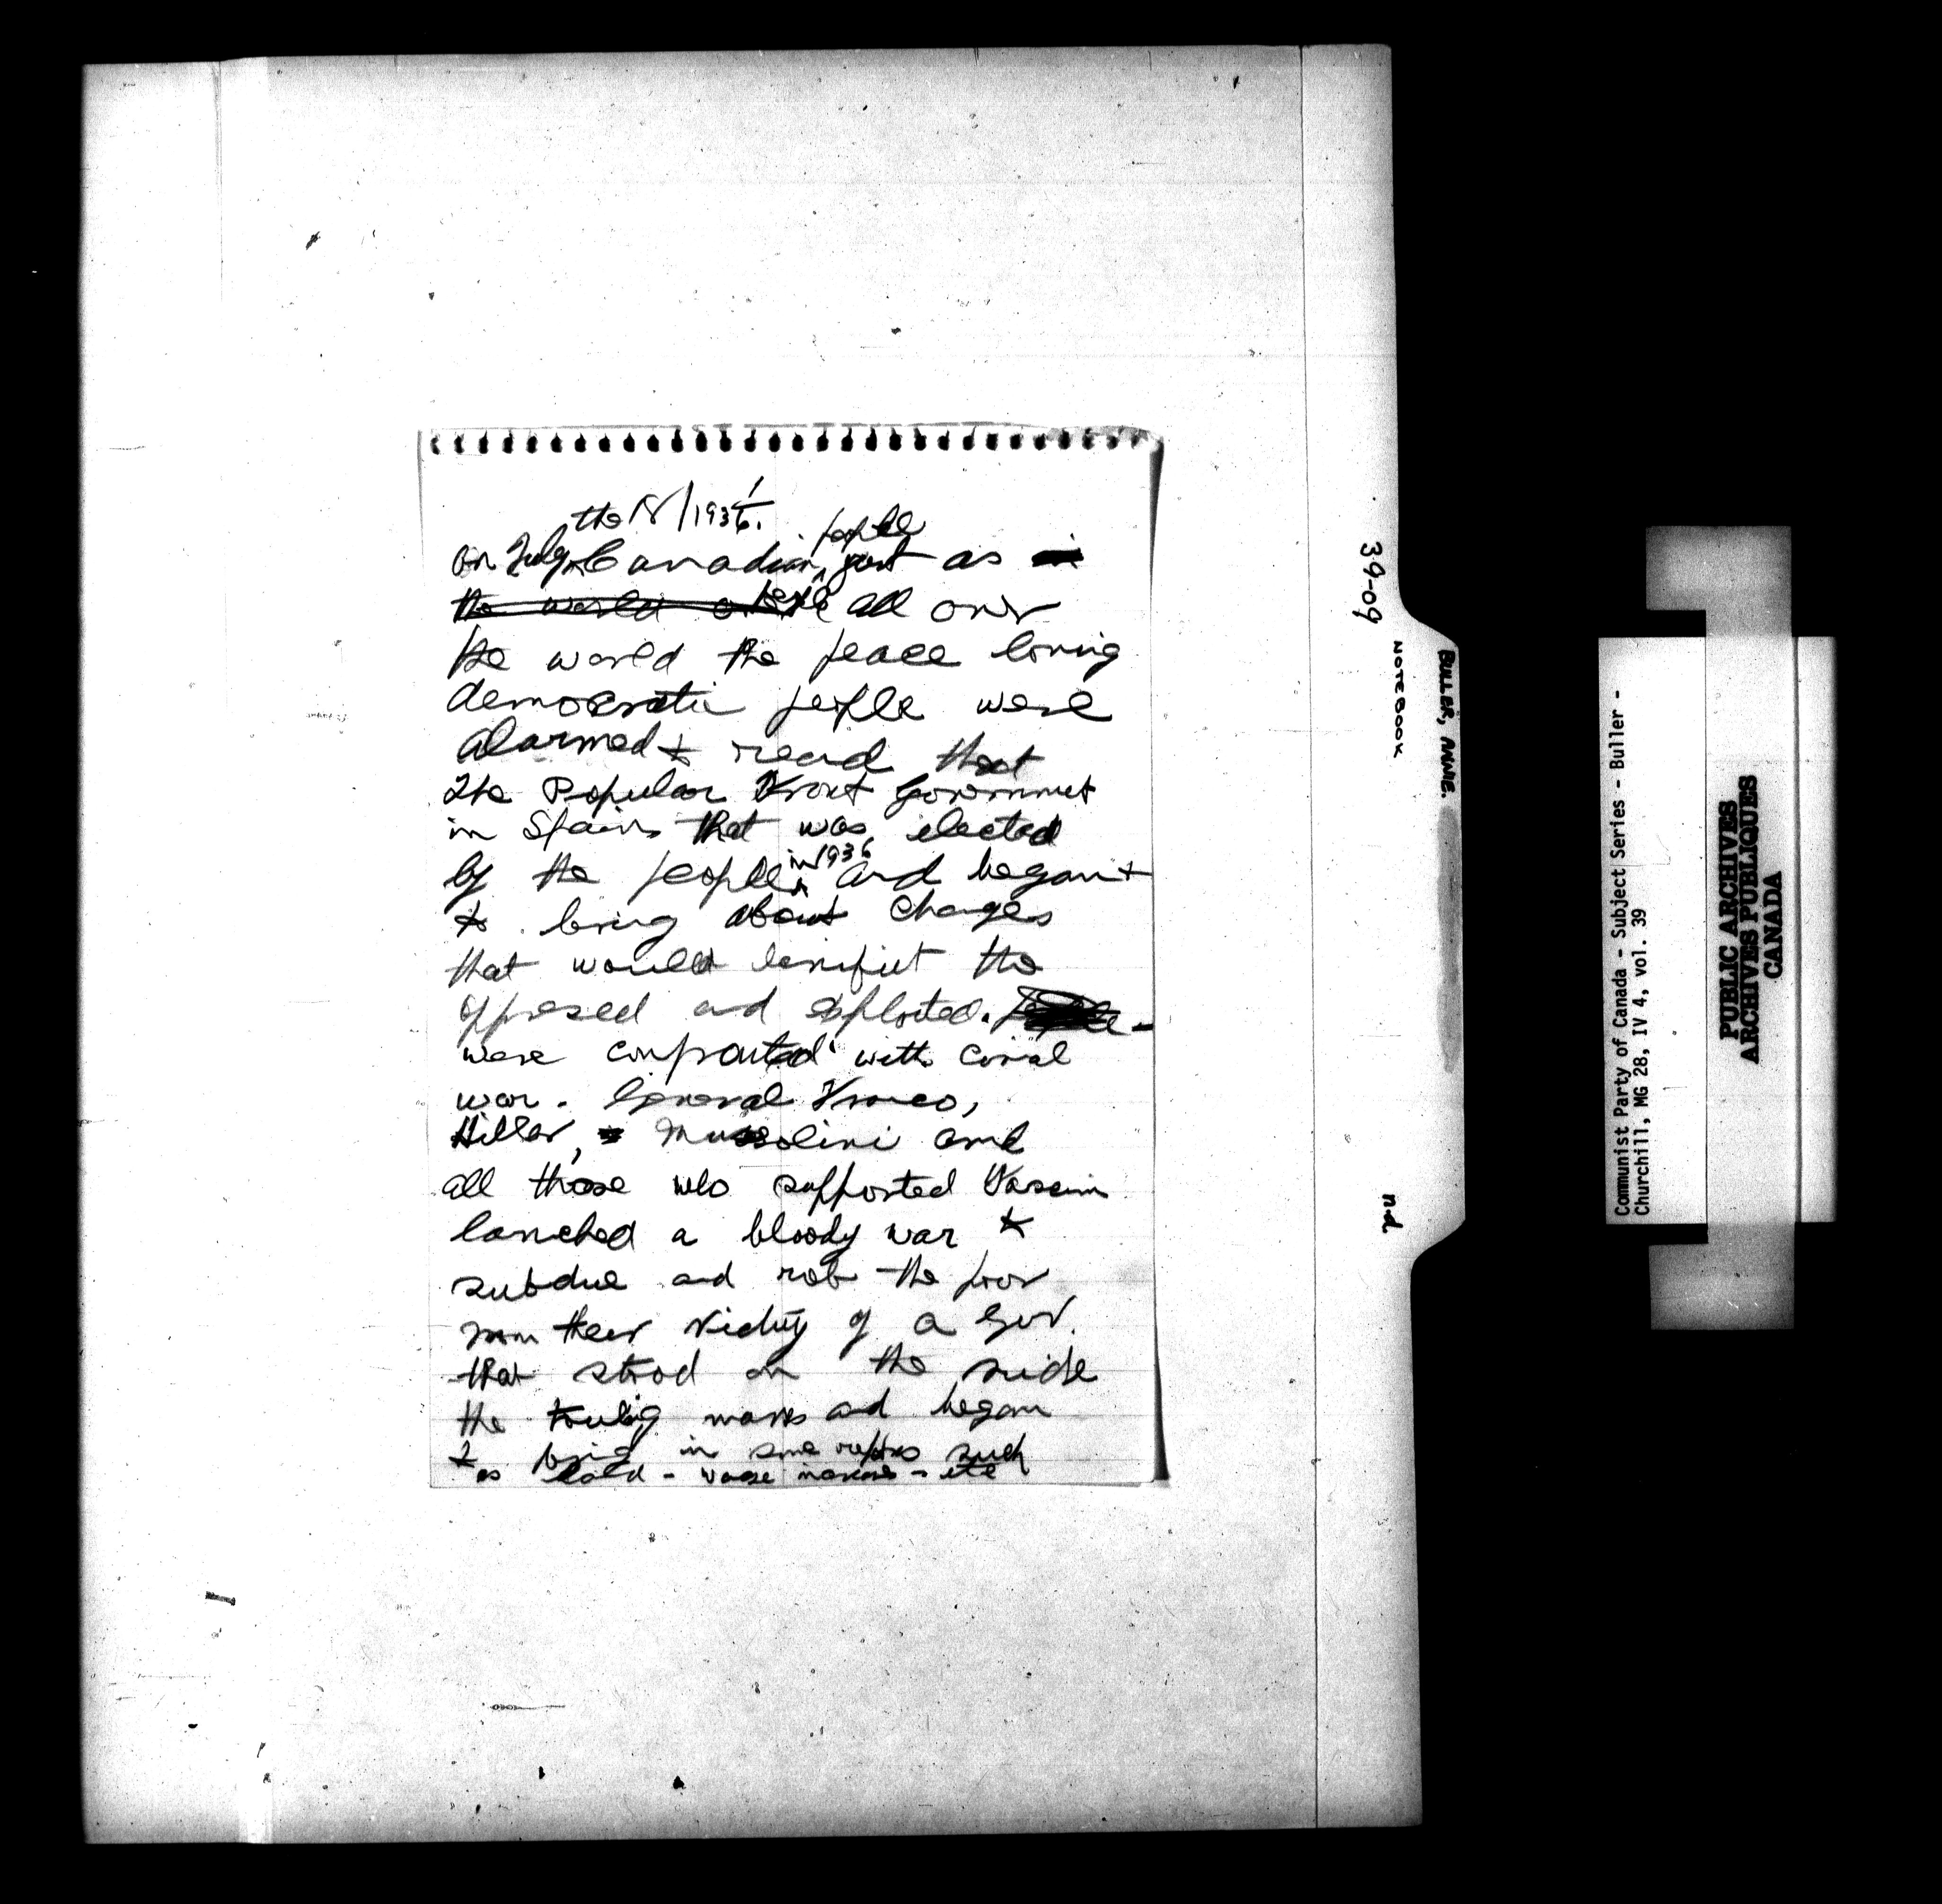 the 18/1936.
people
On July Canadian, just as in
the world over people all over
the world the peace loving
democratic people were
alarmed to read that
the Popular Front Government
in Spain that was elected
in 1936
by the people and began
to bring about changes
that would benifiet the
oppresed and exploited. people
were confronted with Cival
war. General Franco,
Hitler, Mussolini and
all those who supported Fascim
lanched a bloody war to
subdue and rob the poor
from their victory of a Gov.
that stood on the side
the and began
to bring in some such
as land - wage increase - etc
39-09
NOTEBOOK
BULLER, ANNIE.
n.d.
Communist Party of Canada - Subject Series - Buller -
Churchill, MG 28, IV 4, vol. 39
PUBLIC ARCHIVES
ARCHIVES PUBLIQUES
CANADA